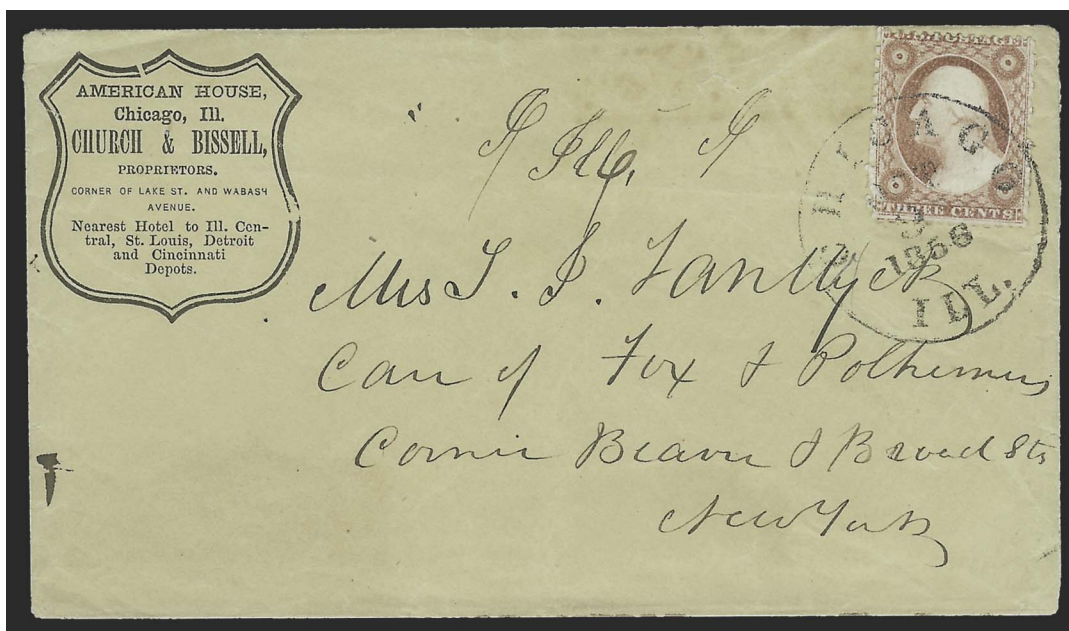 AMERICAN HOUSE,
Chicago, Ill.
CHURCH & BISSELL,
PROPRIETORS.
CORNER OF LAKE ST. AND WABASH
AVENUE.
Nearest Hotel to Ill. Cen-
tral, St. Louis, Detroit
and Cincinnati
Depots.
U.S. POSTAGE
THREE CENTS
CHICAGO
3
1858
ILL.
Mrs
Care of Fox & Polhemus
Corner Beaver & Broad Sts
New York